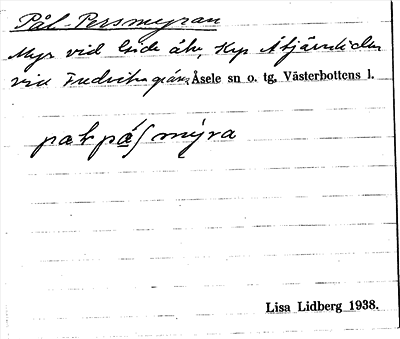 Pål-Persmyran
Myr vid Lide åkr, Hyp Åtjärnlidens
vid Fredrika gräns, Åsele sn o. tg. Västerbottens l.
pak pæ̣ʃ mýra
Lisa Lidberg 1938.